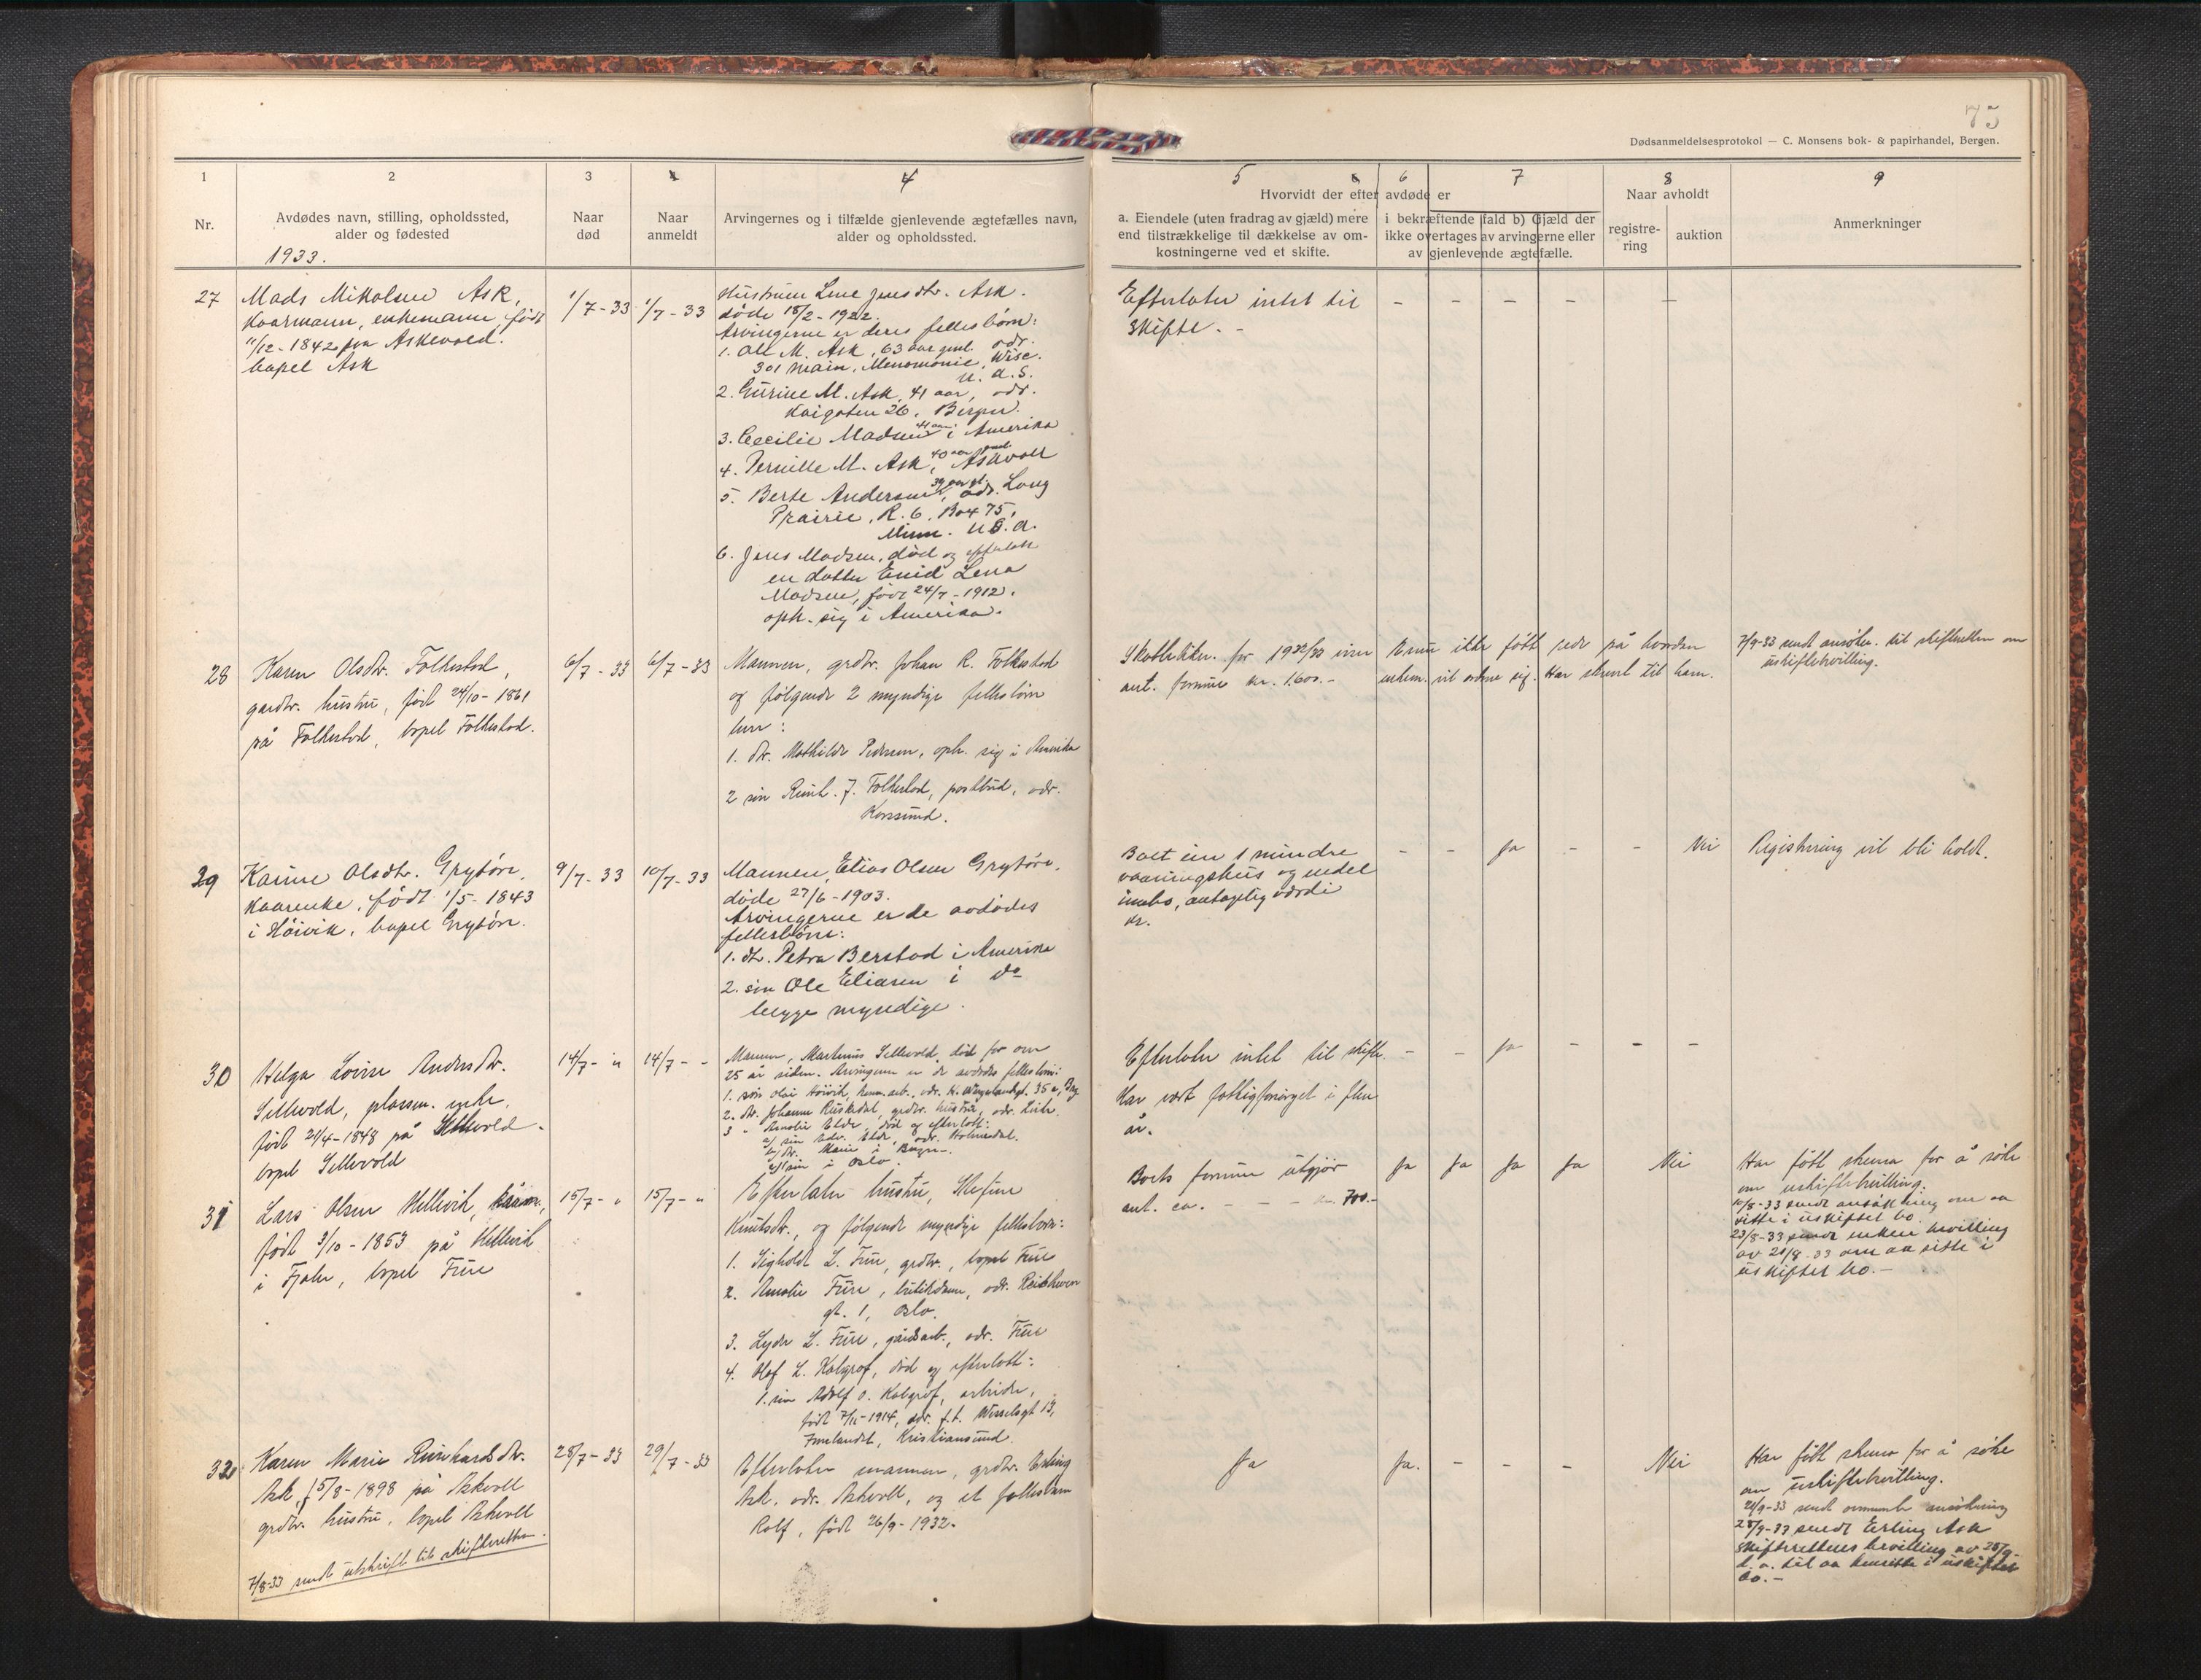 75
Dødsanmeldelsesprotokol — C. Monsens bok- & papirhandel, Bergen.
1 2 3 4 4
5 6 6 7 8 9
Nr.
Avdødes navn, stilling, opholdssted,
alder og fødested
Naar
død
Naar
anmeldt
Arvingernes og i tilfælde gjenlevende ægtefælles navn,
alder og opholdssted.
Hvorvidt der efter avdøde er
a. Eiendele (uten fradrag av gjæld) mere
end tilstrækkelige til dækkelse av om-
kostningerne ved et skifte.
i bekræftende fald b) Gjæld der
ikke overtages av arvingerne eller
av gjenlevende ægtefælle.
Naar avholdt
registre-
ring
auktion
Anmerkninger
1933.
27
Mads Mikalsen Ask,
Kaarmann, enkemann, født
11/12 - 1842 fra Askevold.
bopel Ask
1/7 - 33
1/7 - 33
Hustruen Lene Jensdtr. Ask.
døde 18/2 - 1922.
Arvingerne er deres fellesbørn:
1. Ole M. Ask, 63 aar gml. adr.
301 Main, Menomonie, Wisc.
U. A. S.
2. Gurine M. Ask, 41 aar, adr.
Kaigaten 26, Bergen.
3. Cecilie Madsen 41 aar i Amerika
4. Pernille M. Ask, 40 aar gml. Askvoll
5. Berte Andersen, 39 aar gl. adr. Long
Prairie, R. 6. Box 75,
Minn. U.S.A.
6. Jens Madsen, død og efterlatt
en datter Enid Lena
Madsen, født 24/7 - 1912.
oph. sig i Amerika.
Efterlater intet til
skifte. -
- - - - -
28
Karen Olsdtr. Folkestad,
gardbr. hustru, født 24/10 - 1861
på Folkestad, bopel Folkestad.
6/7 - 33
6/7 - 33
Mannen, grdbr. Johan R. Folkestad
og følgende 2 myndige fellesbørn
1. dtr. Mathilde Pedersen, oph. sig i Amerika
2 søn Reinh. J. Folkestad, postbud, adr.
Korssund.
Skattelikn. for 1932/33 viser
ant. formue kr. 1600.-
Ennu ikke fått rede på hvordan
enkem. vil ordne sig. Har skrevet til ham.
7/9-33 sendt ansøkn. til skifteretten om
uskiftebevilling.
29
Karine Olsdtr. Grytøra,
Kaarenke, født 1/5 - 1843
i Høivik, bopel Grytøra.
9/7 - 33
10/7 - 33
Mannen, Elias Olsen Grytøra,
døde 27/6 - 1903.
Arvingerne er de avdødes
fellesbørn:
1. dtr. Petra Berstad i Amerika
2. søn Ole Eliasen i do
begge myndige.
Boet eier 1 mindre
vaaningshus og endel
innbo, antagelig værdi
kr.
- - Ja - - Nei
Registrering vil bli holdt.
30
Helga Lovise Andersdtr.
Sellevold, plassm. enke,
født 21/4 - 1848 på Sellevold.
bopel Sellevold
14/7 - "
14/7 - -
Mannen, Martinus Sellevold, død for om
25 år siden. Arvingerne er de avdødes fellesbørn:
2. dtr. Johanne Rusksdal, grdbr. hustru, adr.
3 " Amalie Elde, død og efterlatt:
c) søn i Oslo.
Efterlater intet til skifte.
Har vært fattigforsørget i flere
år.
- - Ja - - -
31
Lars Olsen Hellevik, kårm.,
født 3/10 - 1853 på Hellevik
i Fjaler, bopel Fure
15/7 - "
15/7 - "
Efterlater hustru,
Knutsdtr., og følgende myndige fellesbørn:
1. Sigvald L. Fure, grdbr., bopel Fure
2. Amalie Fure, butikdame, adr.
gt. 1, Oslo.
3. Lyder L. Fure, gårdsarb., adr. Fure
4. Olaf L. Kalgraf, død og efterlatt:
1. søn Adolf O. Kalgraf, arbeider,
født 7/11-1914, adr. f.t. Wesselsgt 13,
Innlandet, Kristiansund.
Boets formue utgjør
ant. ca. - - - kr. 700.-
Ja Ja Ja Ja Nei
Har fått skema for å søke
om uskiftebevilling.
10/8-33 sendt ansøkning om aa
sitte i uskiftet bo.
23/8-33 sendt enken bevilling
av 21/8-33 om aa sitte i
uskiftet bo. -
32
Karen Marie Reinhardsdtr.
Ask, f 5/8 - 1898 på Askvoll
grdbr. hustru, bopel Askvoll
7/8-33 sendt utskrift til skifteretten.
28/7 - 33
29/7 - 33
Efterlater mannen, grdbr. Erling
Ask, adr. Askvoll, og et fellesbarn
Rolf, født 26/9 - 1932.
Ja
Ja. - - - Nei
Har fått skema for å søke
om uskiftebevilling.
21/9-33 sendt ansøkning
28/9-33 sendt Erling Ask
skifterettens bevilling av 25/9
d. a. til aa hensitte i uskiftet
bo. -